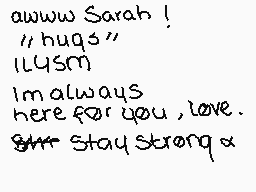 awww Sarah !
"hugs"
ILYSM
Im always
here for you , love.
stay strong x